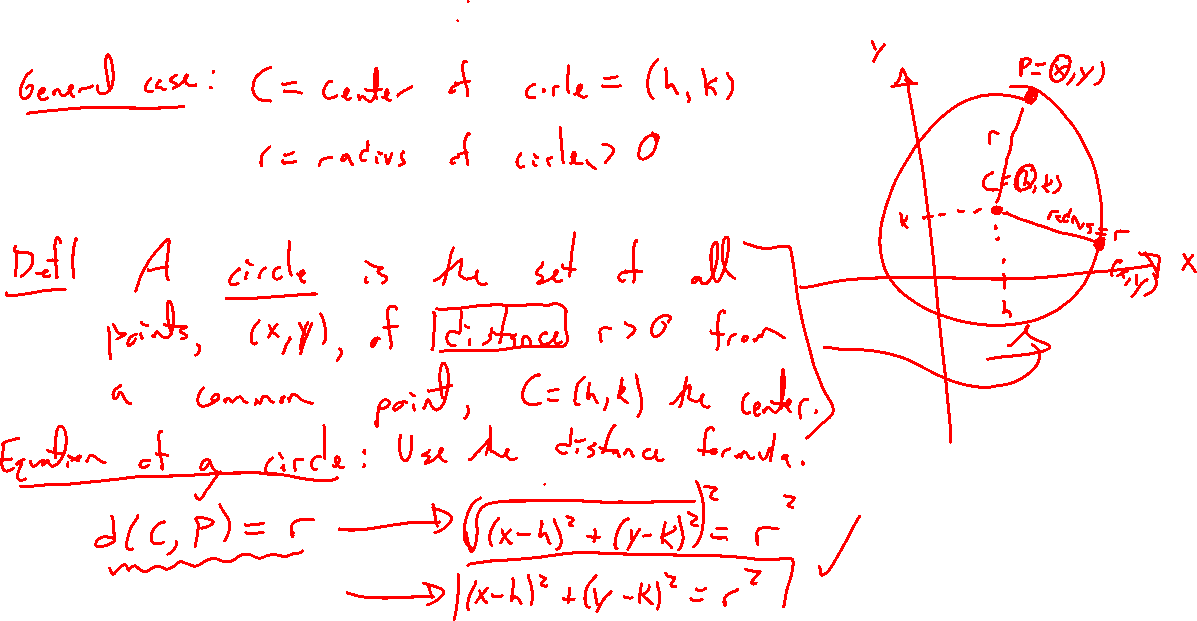 General case: C = center of circle = (h, k)
r = radius of circle > 0
Def| A circle is the set of all
points, (x, y), of distance r > 0 from
a common point, C = (h, k) the center.
Equation of a circle: Use the distance formula.
d(C, P) = r → (√(x-h)² + (y-k)²)² = r²
→ (x-h)² + (y-k)² = r²
Y
P = (x, y)
r
C = (h, k)
k
radius = r
(x, y)
X
h